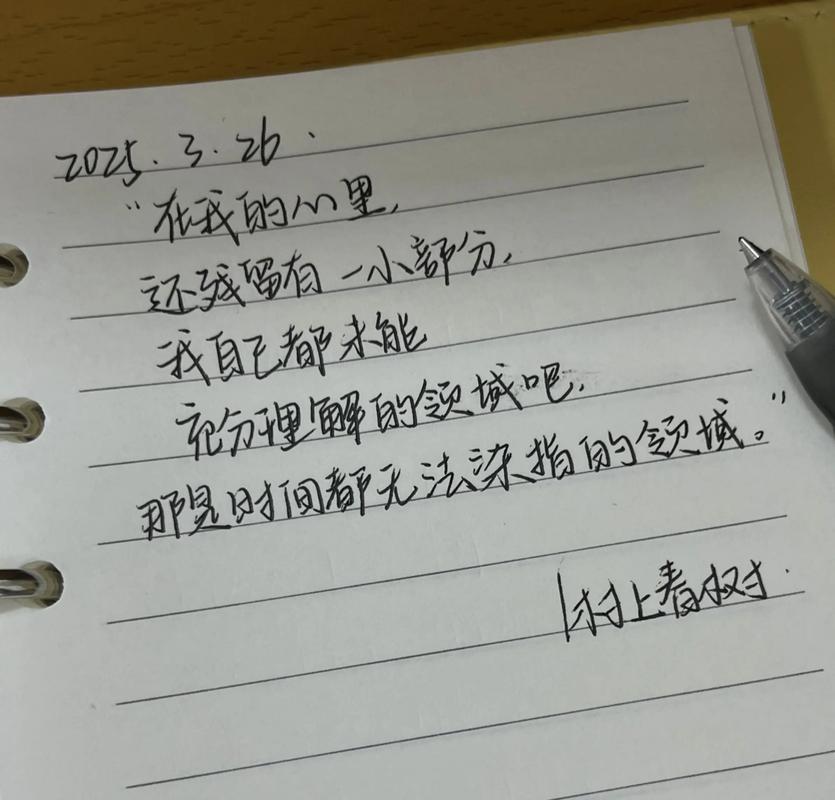 2025.3.26.
“在我的心里,
还残留有一小部分,
我自己都未能
充分理解的领域吧,
那是时间都无法染指的领域。”
|村上春树.